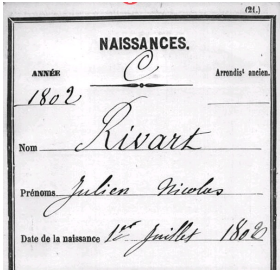 (21.)
NAISSANCES.
C
ANNÉE Arrondist ancien.
1802
Nom Rivart
Prénoms Julien Nicolas
Date de la naissance 1er Juillet 1802